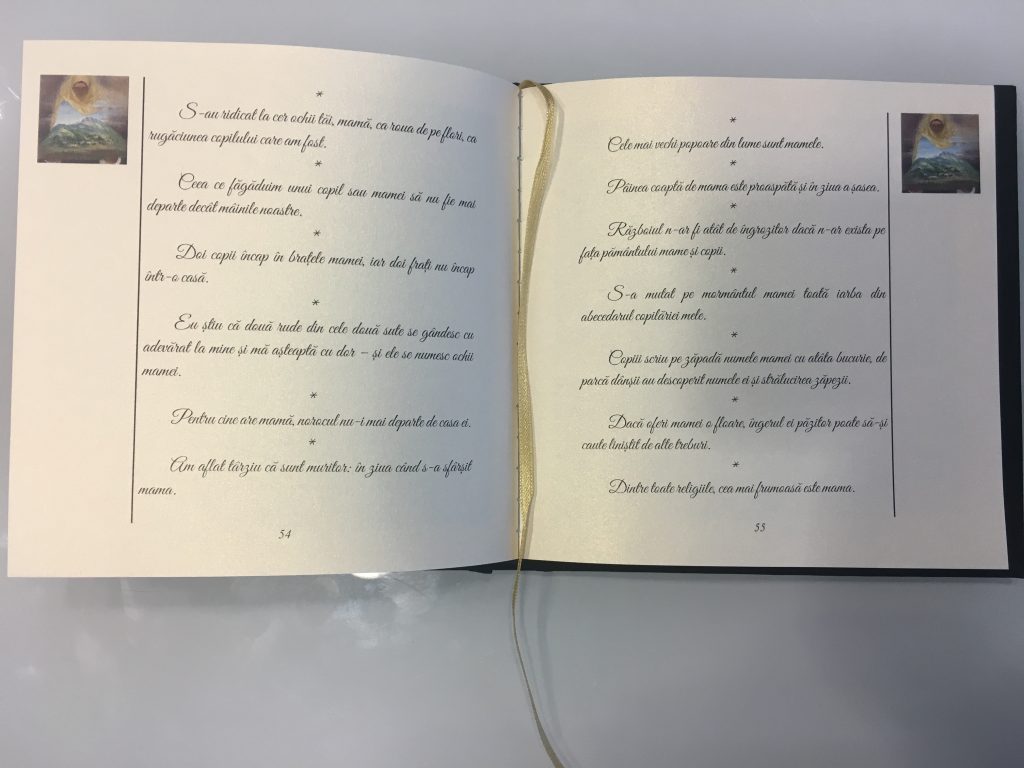 *
S-au ridicat la cer ochii tăi, mamă, ca roua de pe flori, ca
rugăciunea copilului care am fost.
*
Ceea ce făgăduim unui copil sau mamei să nu fie mai
departe decât mâinile noastre.
*
Doi copii încap în brațele mamei, iar doi frați nu încap
într-o casă.
*
Eu știu că două rude din cele două sute se gândesc cu
adevărat la mine și mă așteaptă cu dor – și ele se numesc ochii
mamei.
*
Pentru cine are mamă, norocul nu-i mai departe de casa ei.
*
Am aflat târziu că sunt muritor: în ziua când s-a sfârșit
mama.
54
*
Cele mai vechi popoare din lume sunt mamele.
*
Pâinea coaptă de mama este proaspătă și în ziua a șasea.
*
Războiul n-ar fi atât de îngrozitor dacă n-ar exista pe
fața pământului mame și copii.
*
S-a mutat pe mormântul mamei toată iarba din
abecedarul copilăriei mele.
*
Copiii scriu pe zăpadă numele mamei cu atâta bucurie, de
parcă dânșii au descoperit numele ei și strălucirea zăpezii.
*
Dacă oferi mamei o floare, îngerul ei păzitor poate să-și
caute liniștit de alte treburi.
*
Dintre toate religiile, cea mai frumoasă este mama.
55